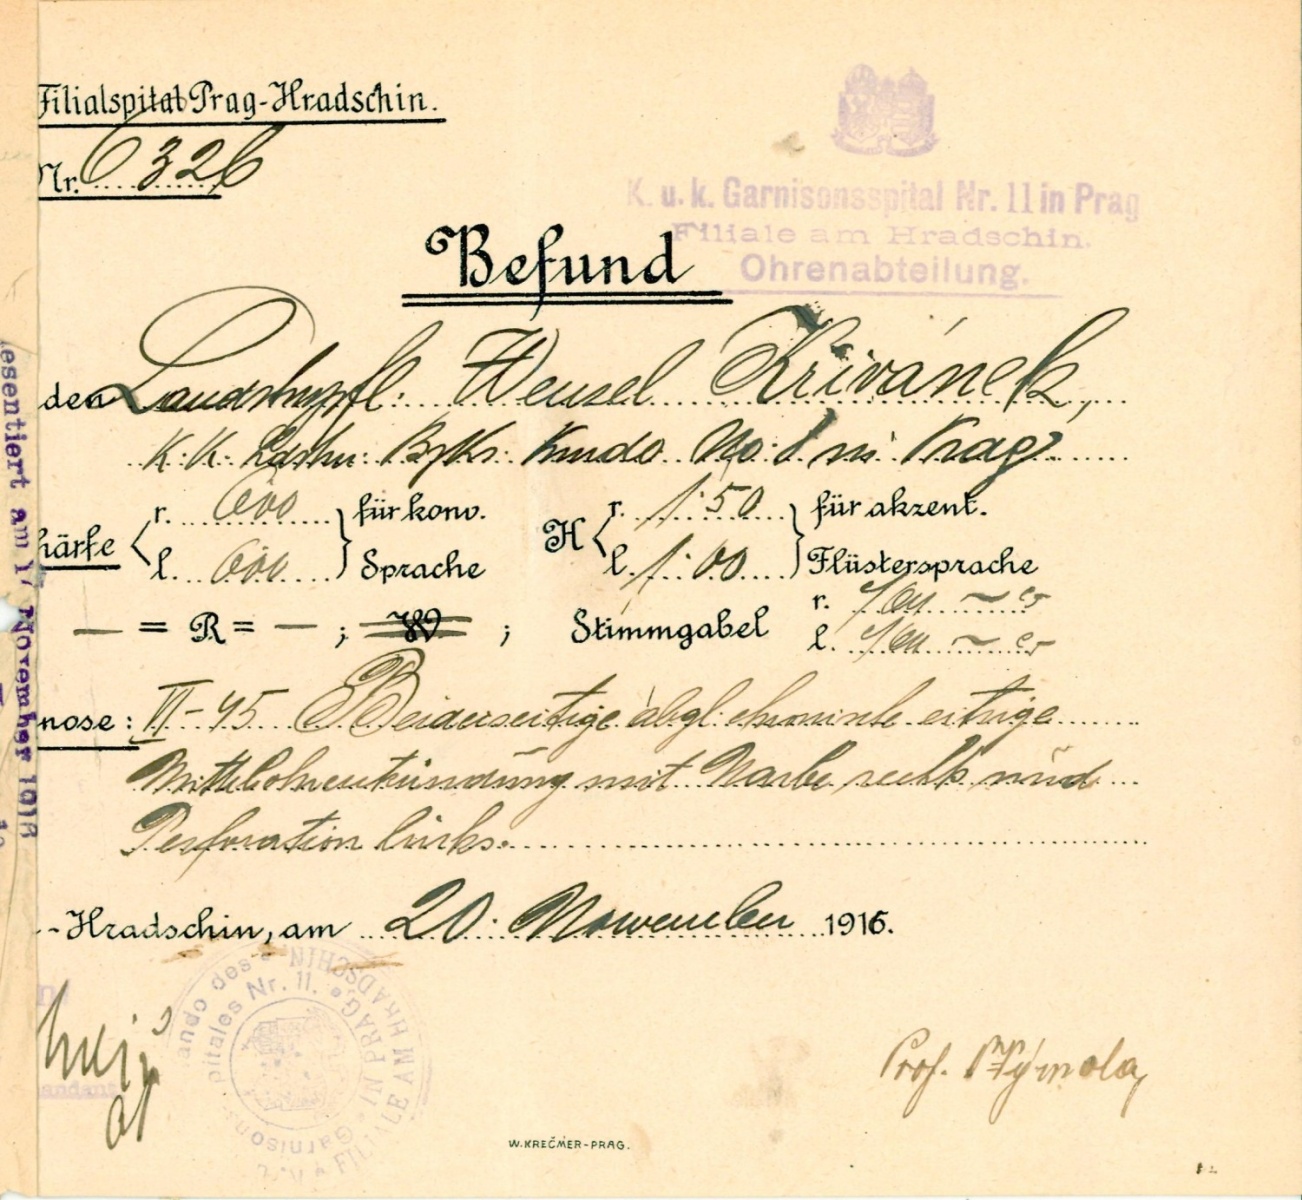 Filialspital Prag-Hradschin.
Nr. 6326
K. u. k. Garnisonsspital Nr. 11 in Prag
Filiale am Hradschin.
Ohrenabteilung.
Befund
den Landstupfl. Wenzel Křivánek,
K. K. Ldstu. Bzks. Kmdo No. 8 in Prag.
r. 600 für konv. H r. 1.50 für akzent.
härfe l. 600 Sprache l. 1.00 Flüstersprache
— = R = — ; W ; Stimmgabel r.
l.
nose: III-45 Beiderseitige abgl. chronische eitrige
Mittelohrentzündung mit Narbe rechts und
Perforation links.
-Hradschin, am 20. November 1916.
esentiert am November 1916
ando des
pitales Nr. 11.
IN PRAG
FILIALE AM HRADSCHIN
Garnison
andant
Prof. Výmola
W. KREČMER-PRAG.